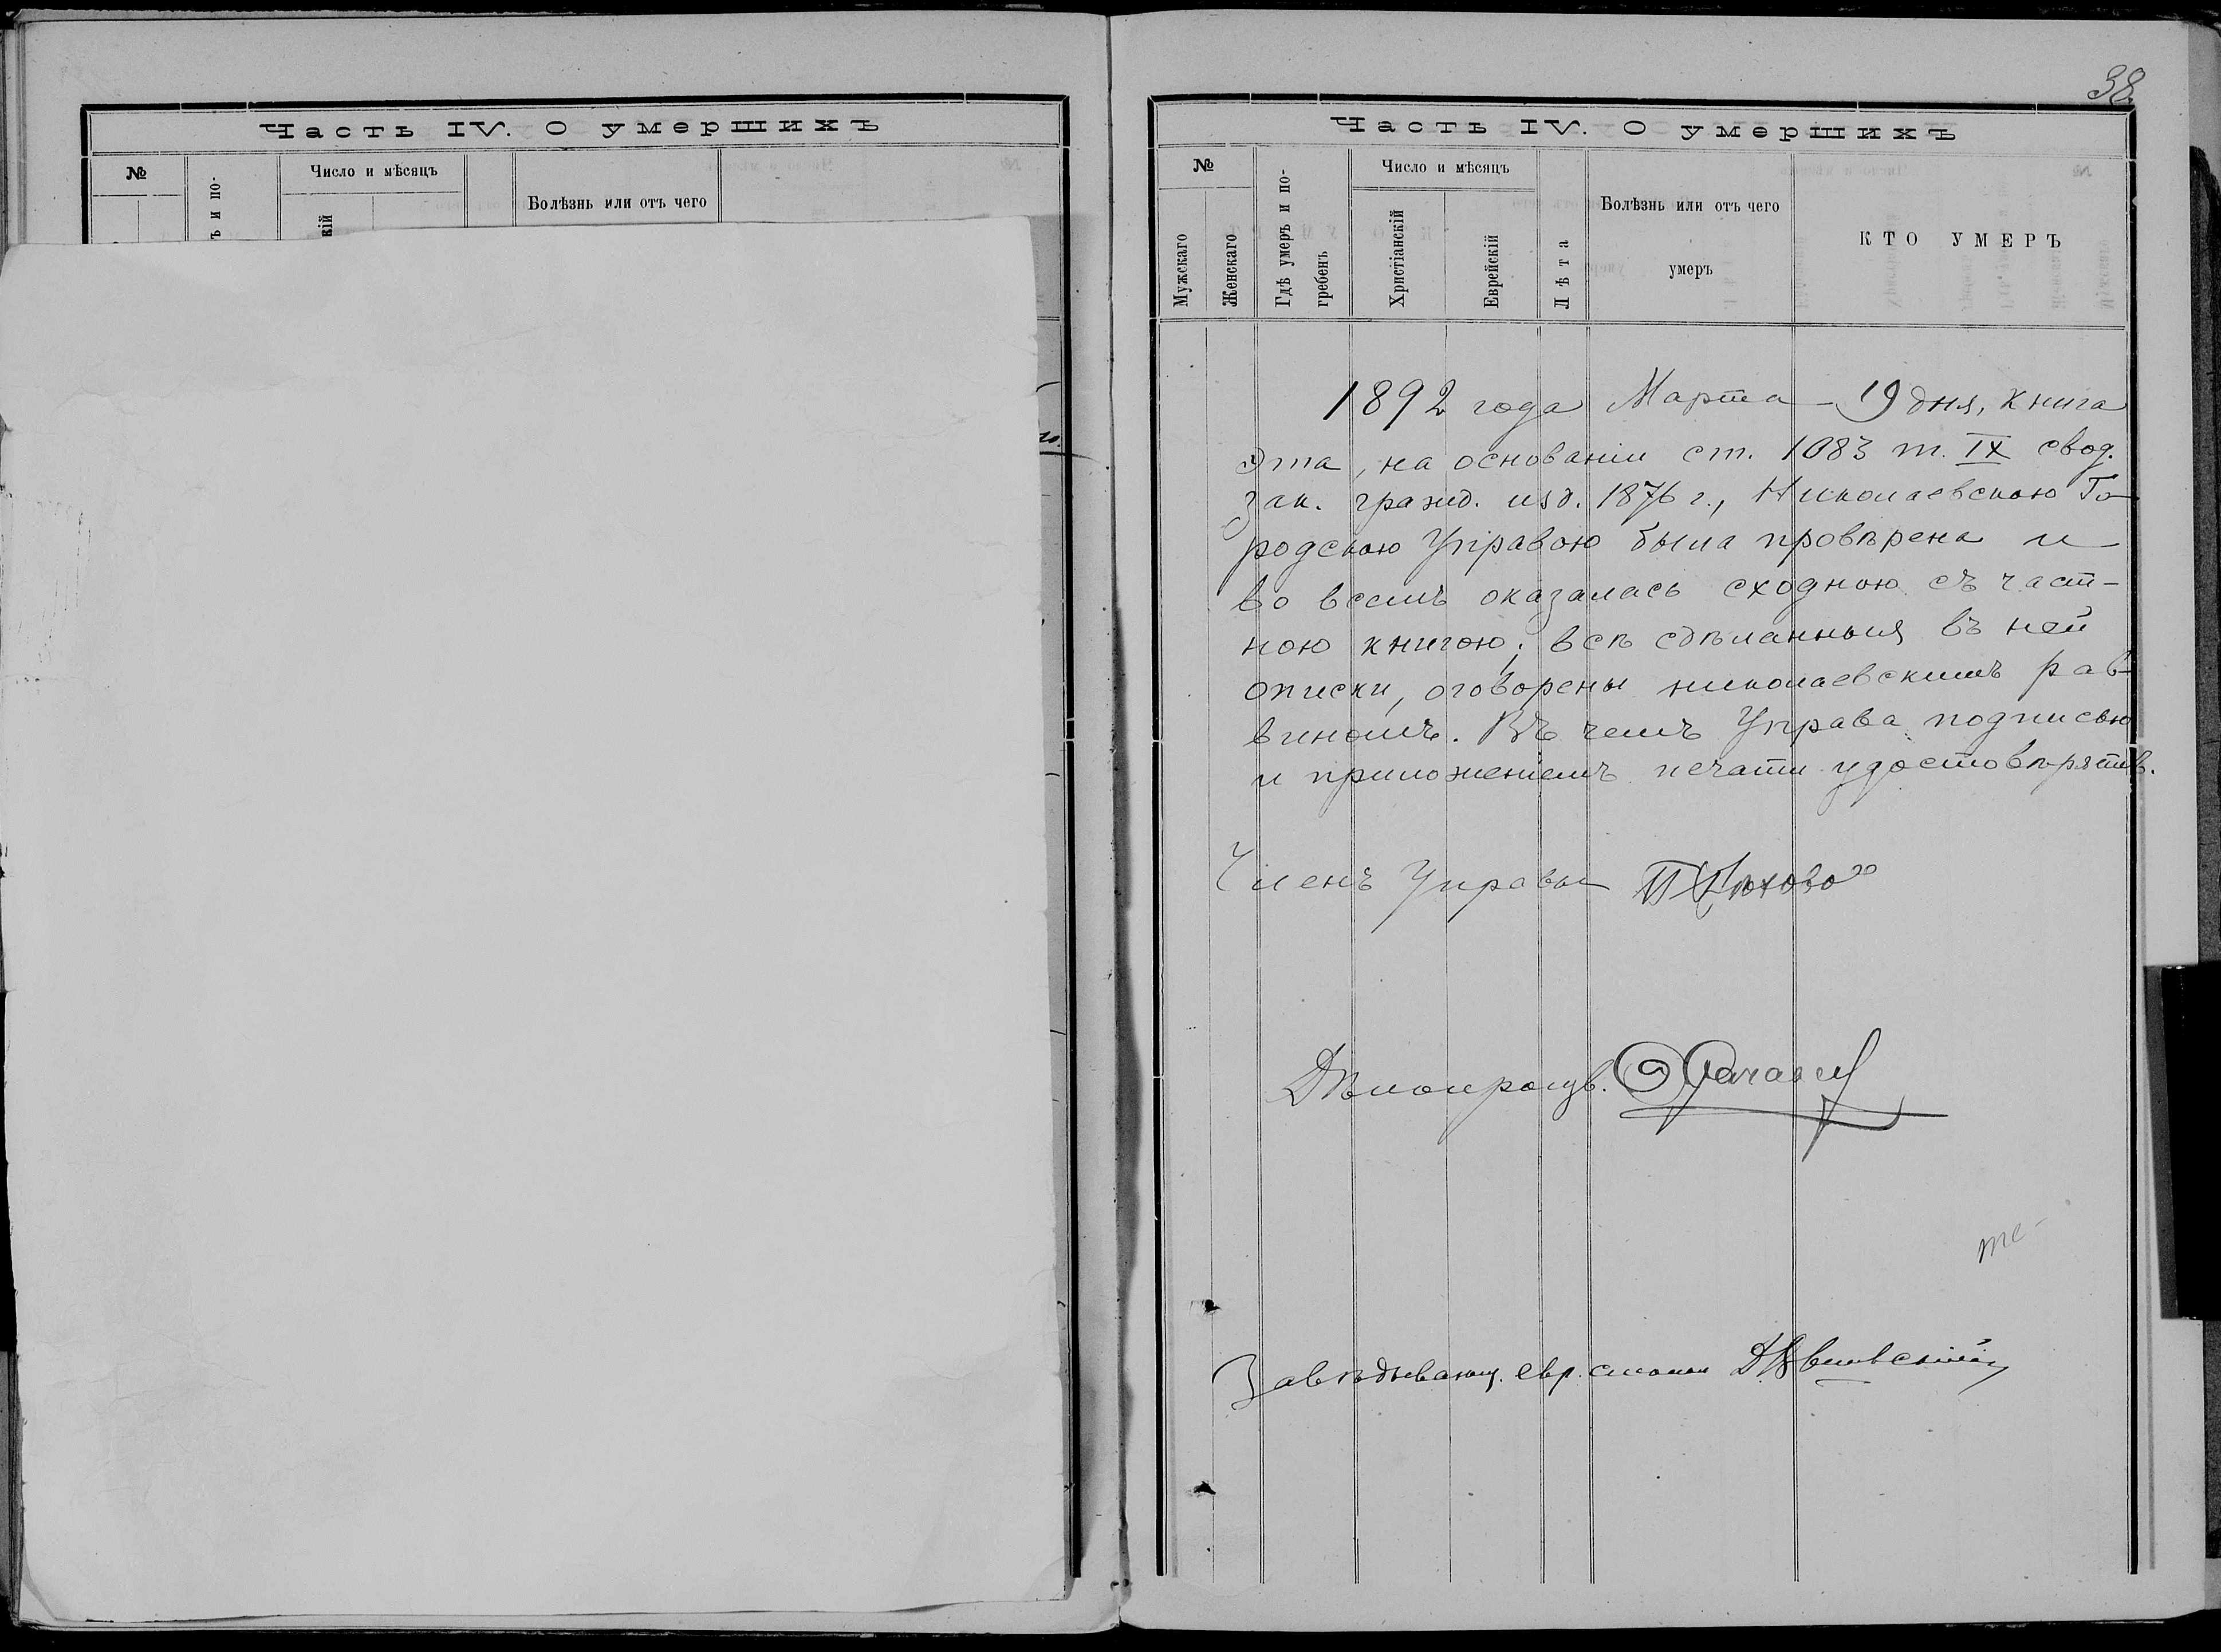 Часть IV. О умершихъ
№
ъ и по-
Число и мѣсяцъ
кій
Болѣзнь или отъ чего
38
Часть IV. О умершихъ
№
Мужскаго
Женскаго
Гдѣ умеръ и по-
гребенъ
Число и мѣсяцъ
Христіанскій
Еврейскій
Лѣта
Болѣзнь или отъ чего
умеръ
КТО УМЕРЪ
1892 года Марта – 19 дня, книга
эта, на основаніи ст. 1083 т. IX свод.
зак. гражд. изд. 1876 г., Николаевскою Го-
родскою Управою была провѣрена и
во всемъ оказалась сходною съ част-
ною книгою; всѣ сдѣланныя въ ней
описки, оговорены николаевскимъ рав-
виномъ. Въ чемъ Управа подписью
и приложеніемъ печати удостовѣряетъ.
Членъ Управы
Дѣлопроизв.
Завѣдывающ. евр. столом